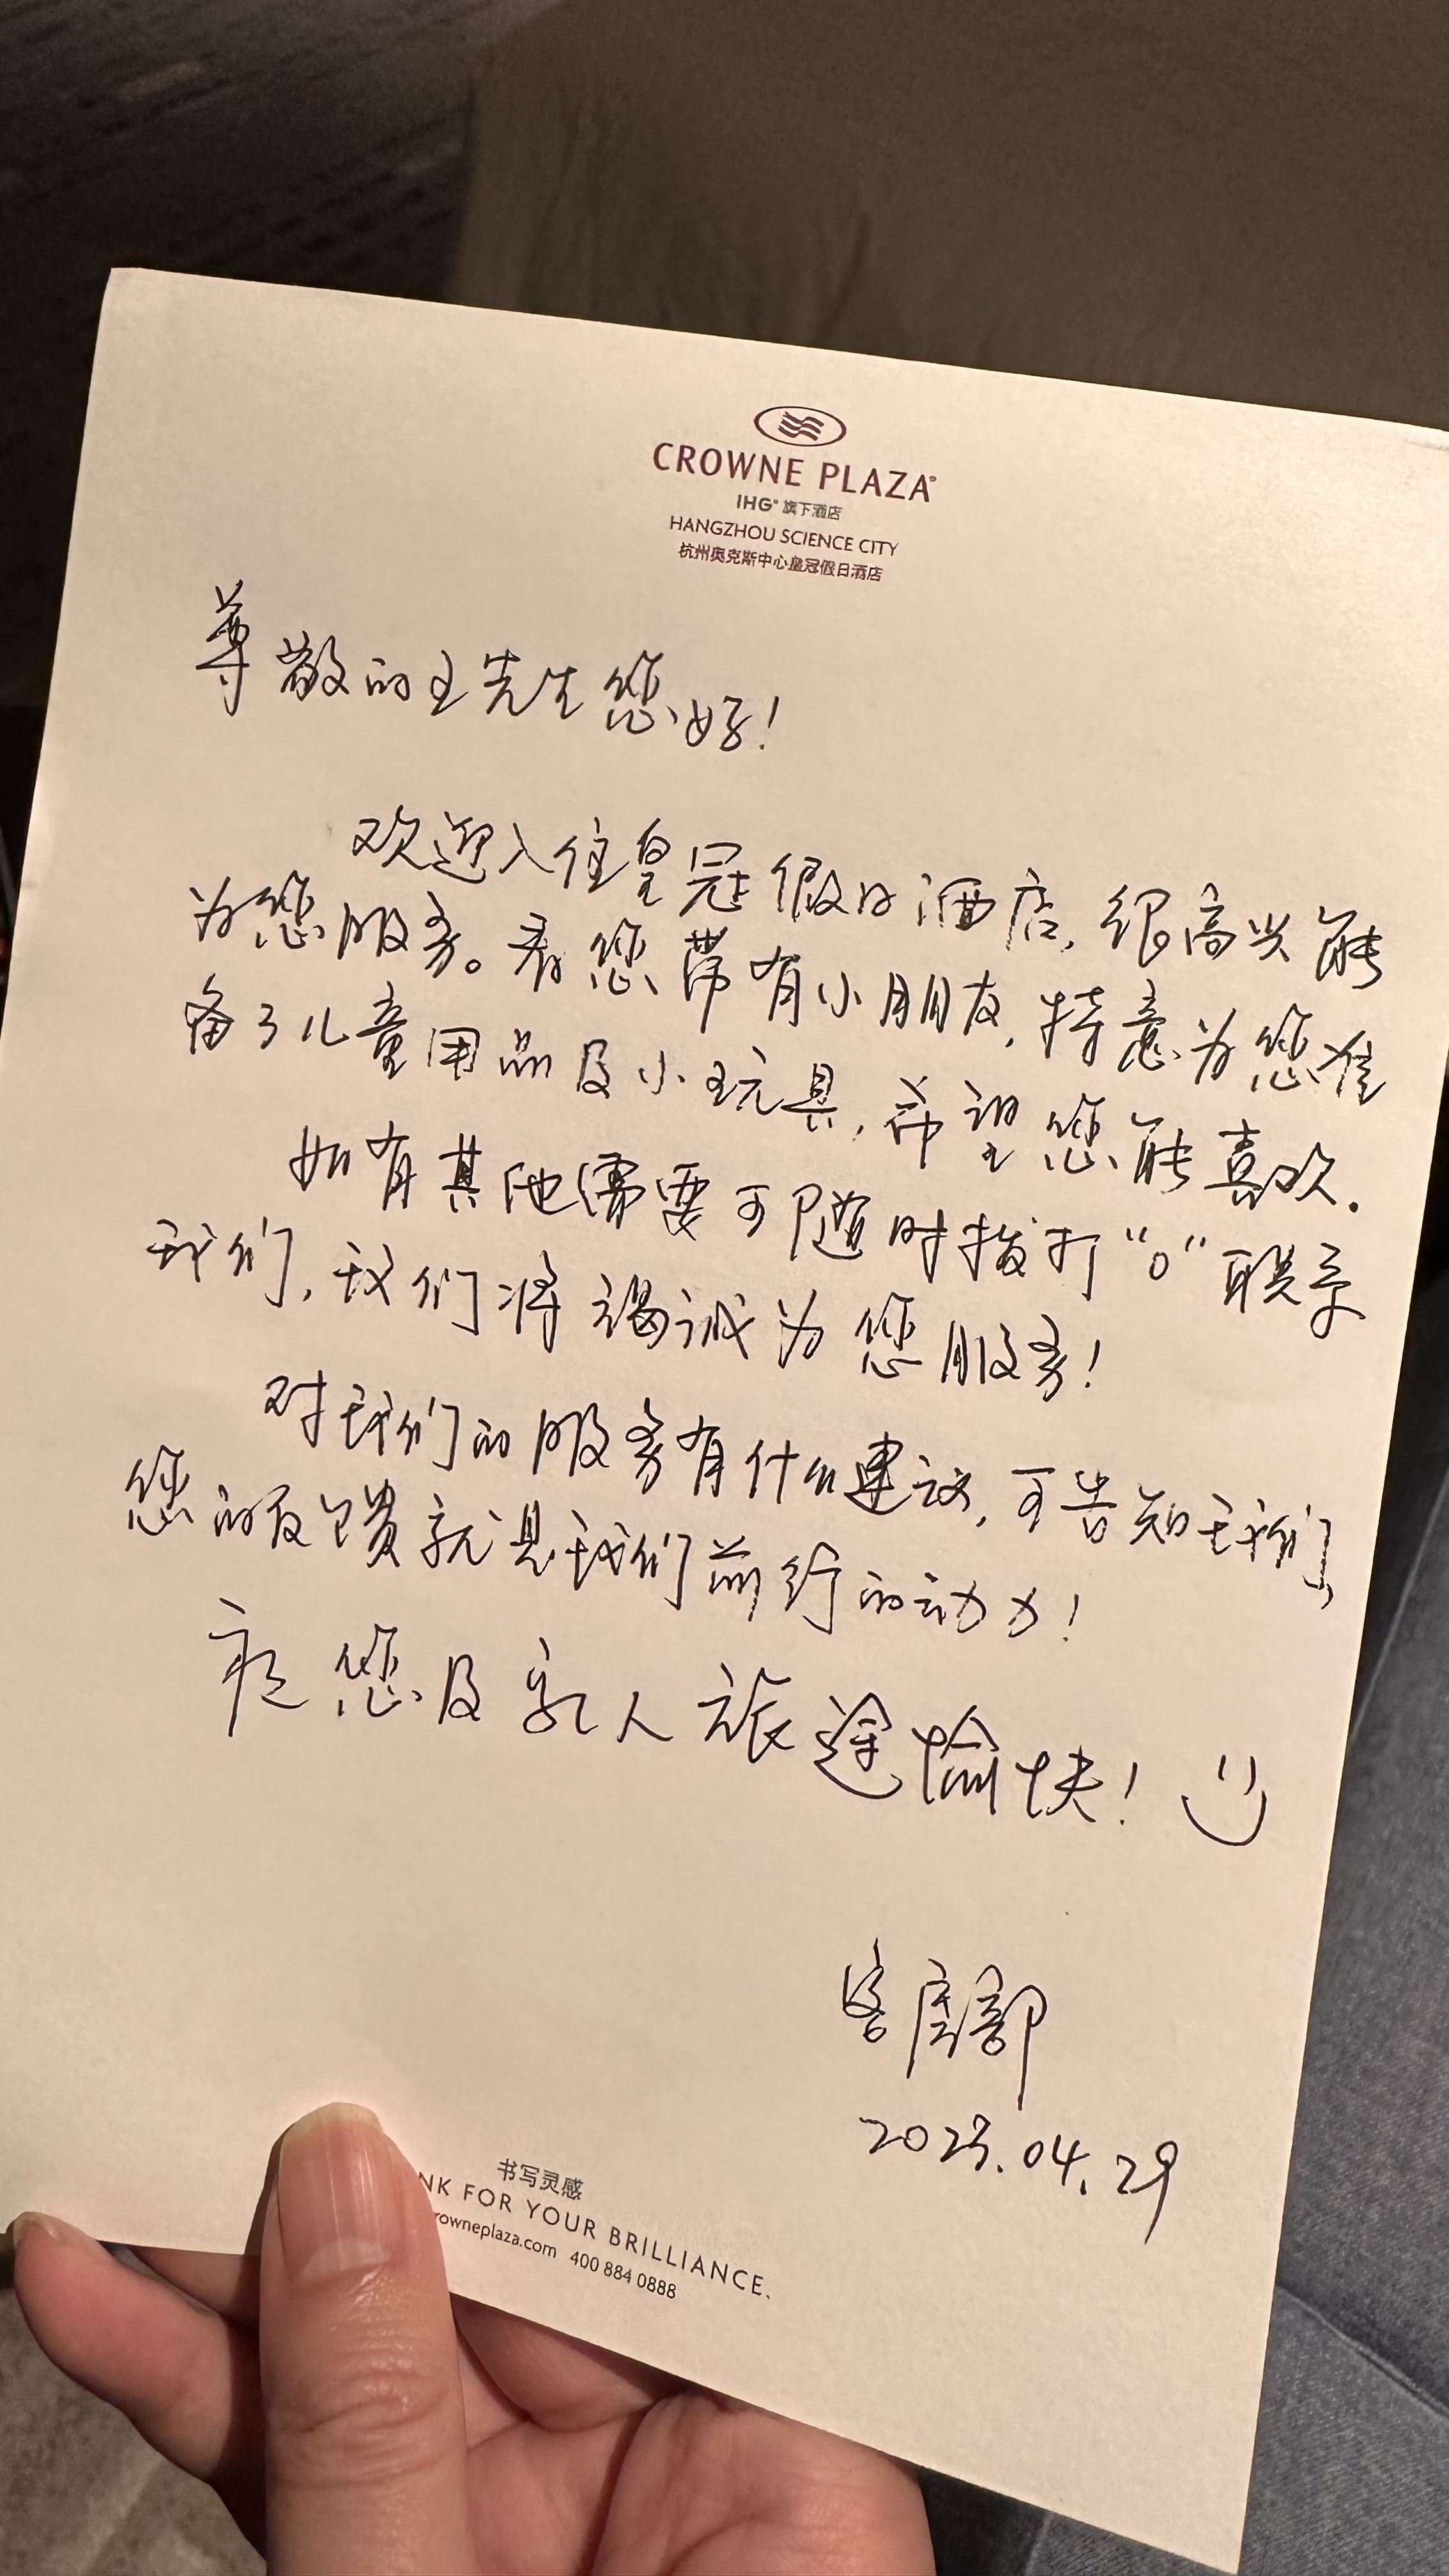 CROWNE PLAZA
IHG® 旗下酒店
HANGZHOU SCIENCE CITY
杭州奥克斯中心皇冠假日酒店
尊敬的王先生您好！
欢迎入住皇冠假日酒店，很高兴能
为您服务。看您带有小朋友，特意为您准
备了儿童用品及小玩具，希望您能喜欢.
如有其他需要可随时拨打“0”联系
我们，我们将竭诚为您服务！
对我们的服务有什么建议，可告知我们，
您的反馈就是我们前行的动力！
祝您及家人旅途愉快！
客房部
2023.04.29
书写灵感
NK FOR YOUR BRILLIANCE.
rowneplaza.com 400 884 0888